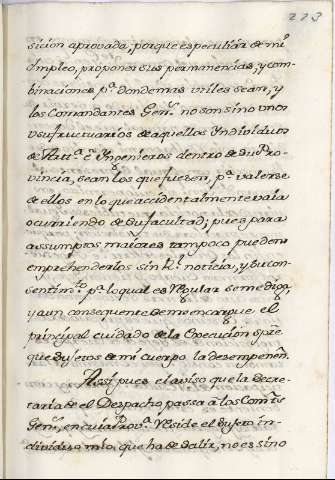 223
sicion aprovada, porque es peculiar de mi
empleo, proponer sus permanencias, y com-
binaciones pª donde mas vtiles sean, y
los Comandantes Gens. no son sino vnos
vsufructuarios de aquellos Yndividuos
de Artª. è Yngenieros dentro de su Pro-
vincia, sean los que fuesen, pª valerse
de ellos en lo que accidentalmente vaia
ocurriendo de su facultad; pues para
assumptos maiores tampoco pueden
emprehenderlos sin Rl. noticia, y su con-
sentimto. pª lo qual es regular se me diga,
y aun consequente de me encargue, el
principal cuidado de la Execucion spre
que sujetos de mi cuerpo la desempeñen.
Assi pues el aviso que la Secre-
taria de el Despacho passa à los Comtes
Gens. en cuia Provª. reside el sujeto in-
dividuo mio, que ha de salir, no es sino